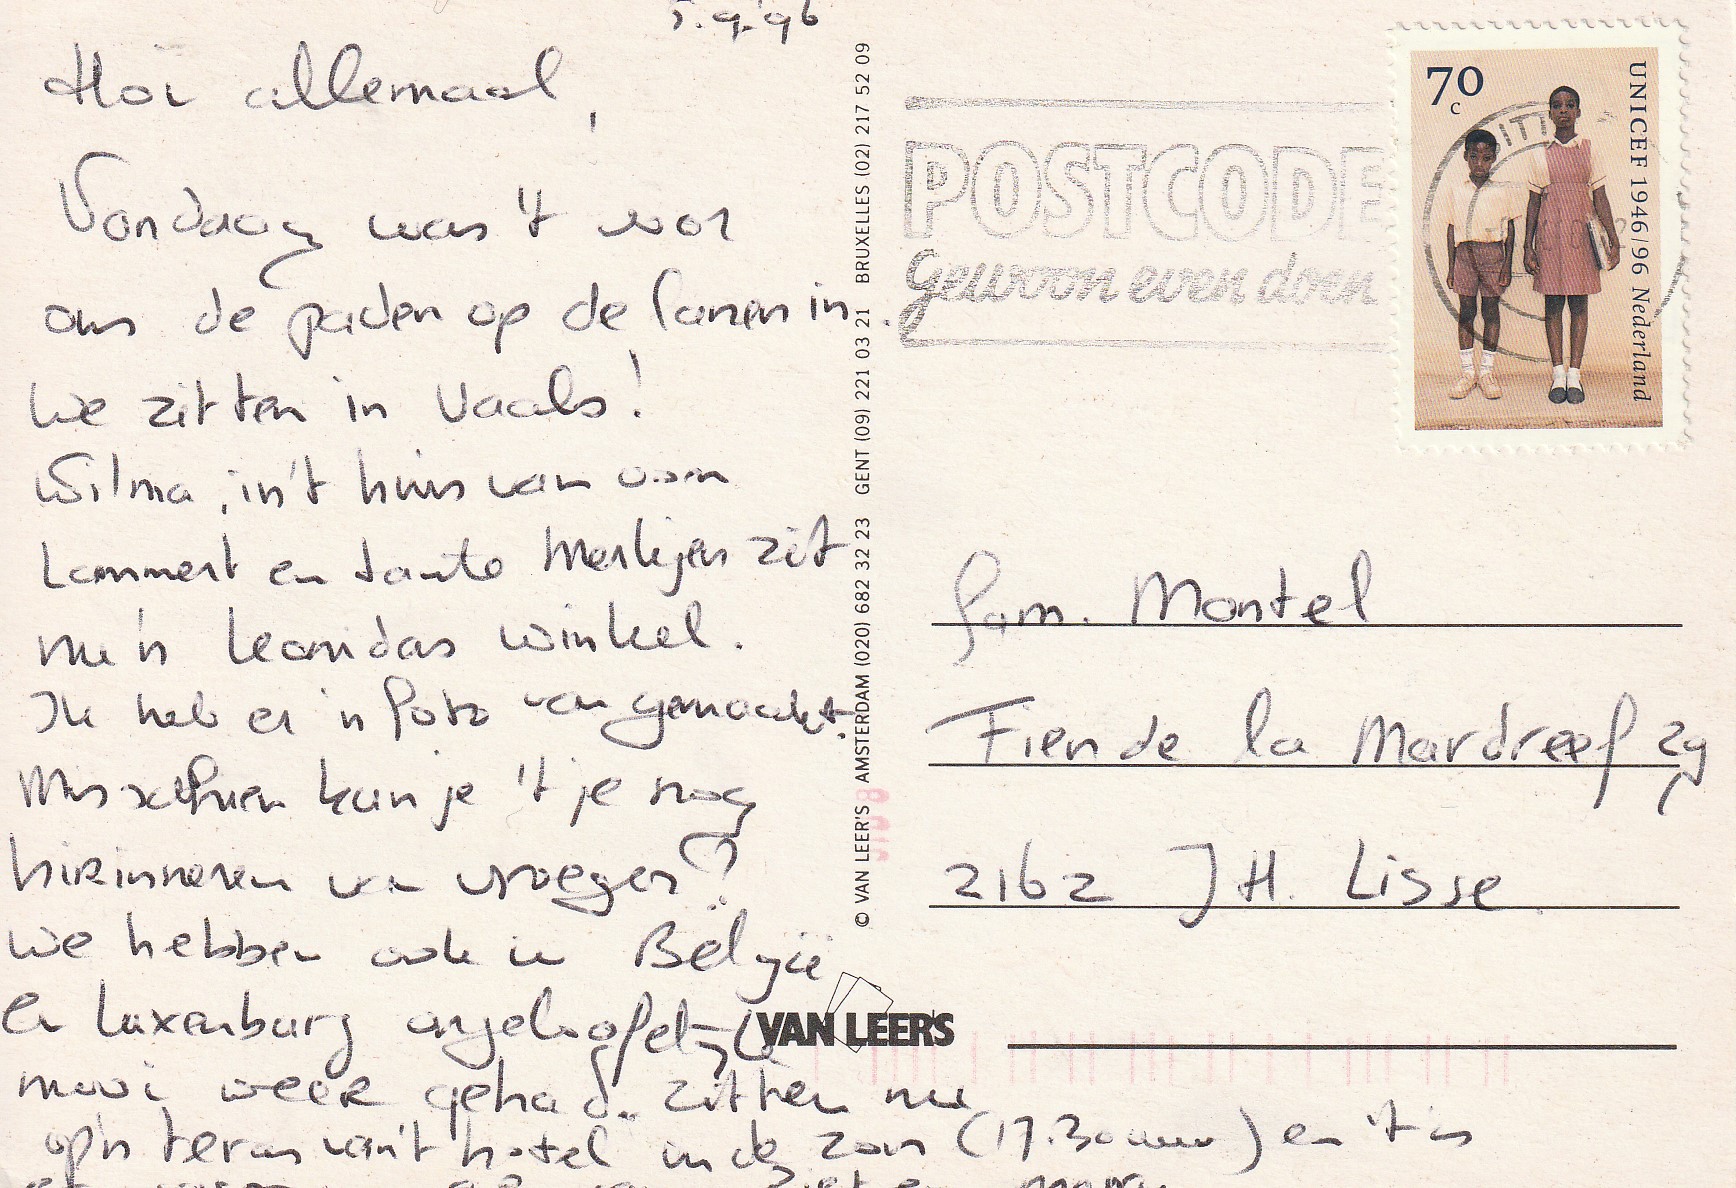 5.9.'96
Hoi allemaal,
Vandaag was 't voor
ons de paden op de lanen in.
We zitten in Vaals!
Wilma, in 't huis van oom
Lammert en tante Martijn zit
nu 'n Leonidas winkel.
Ik heb er 'n foto van gemaakt.
Misschien kan je 't je nog
herinneren van vroeger?
We hebben ook in België
en Luxenburg
mooi weer gehad. Zitten nu
op 'n terras van 't hotel in de zon (17.30 uur) en 't is
© VAN LEER'S AMSTERDAM (020) 682 32 23 GENT (09) 221 03 21 BRUXELLES (02) 217 52 09
VAN LEER'S
POSTCODE
gewoon even doen
70
c
UNICEF 1946/96 Nederland
fam. Montel
Fien de la Mardreef 29
2162 JH. Lisse.